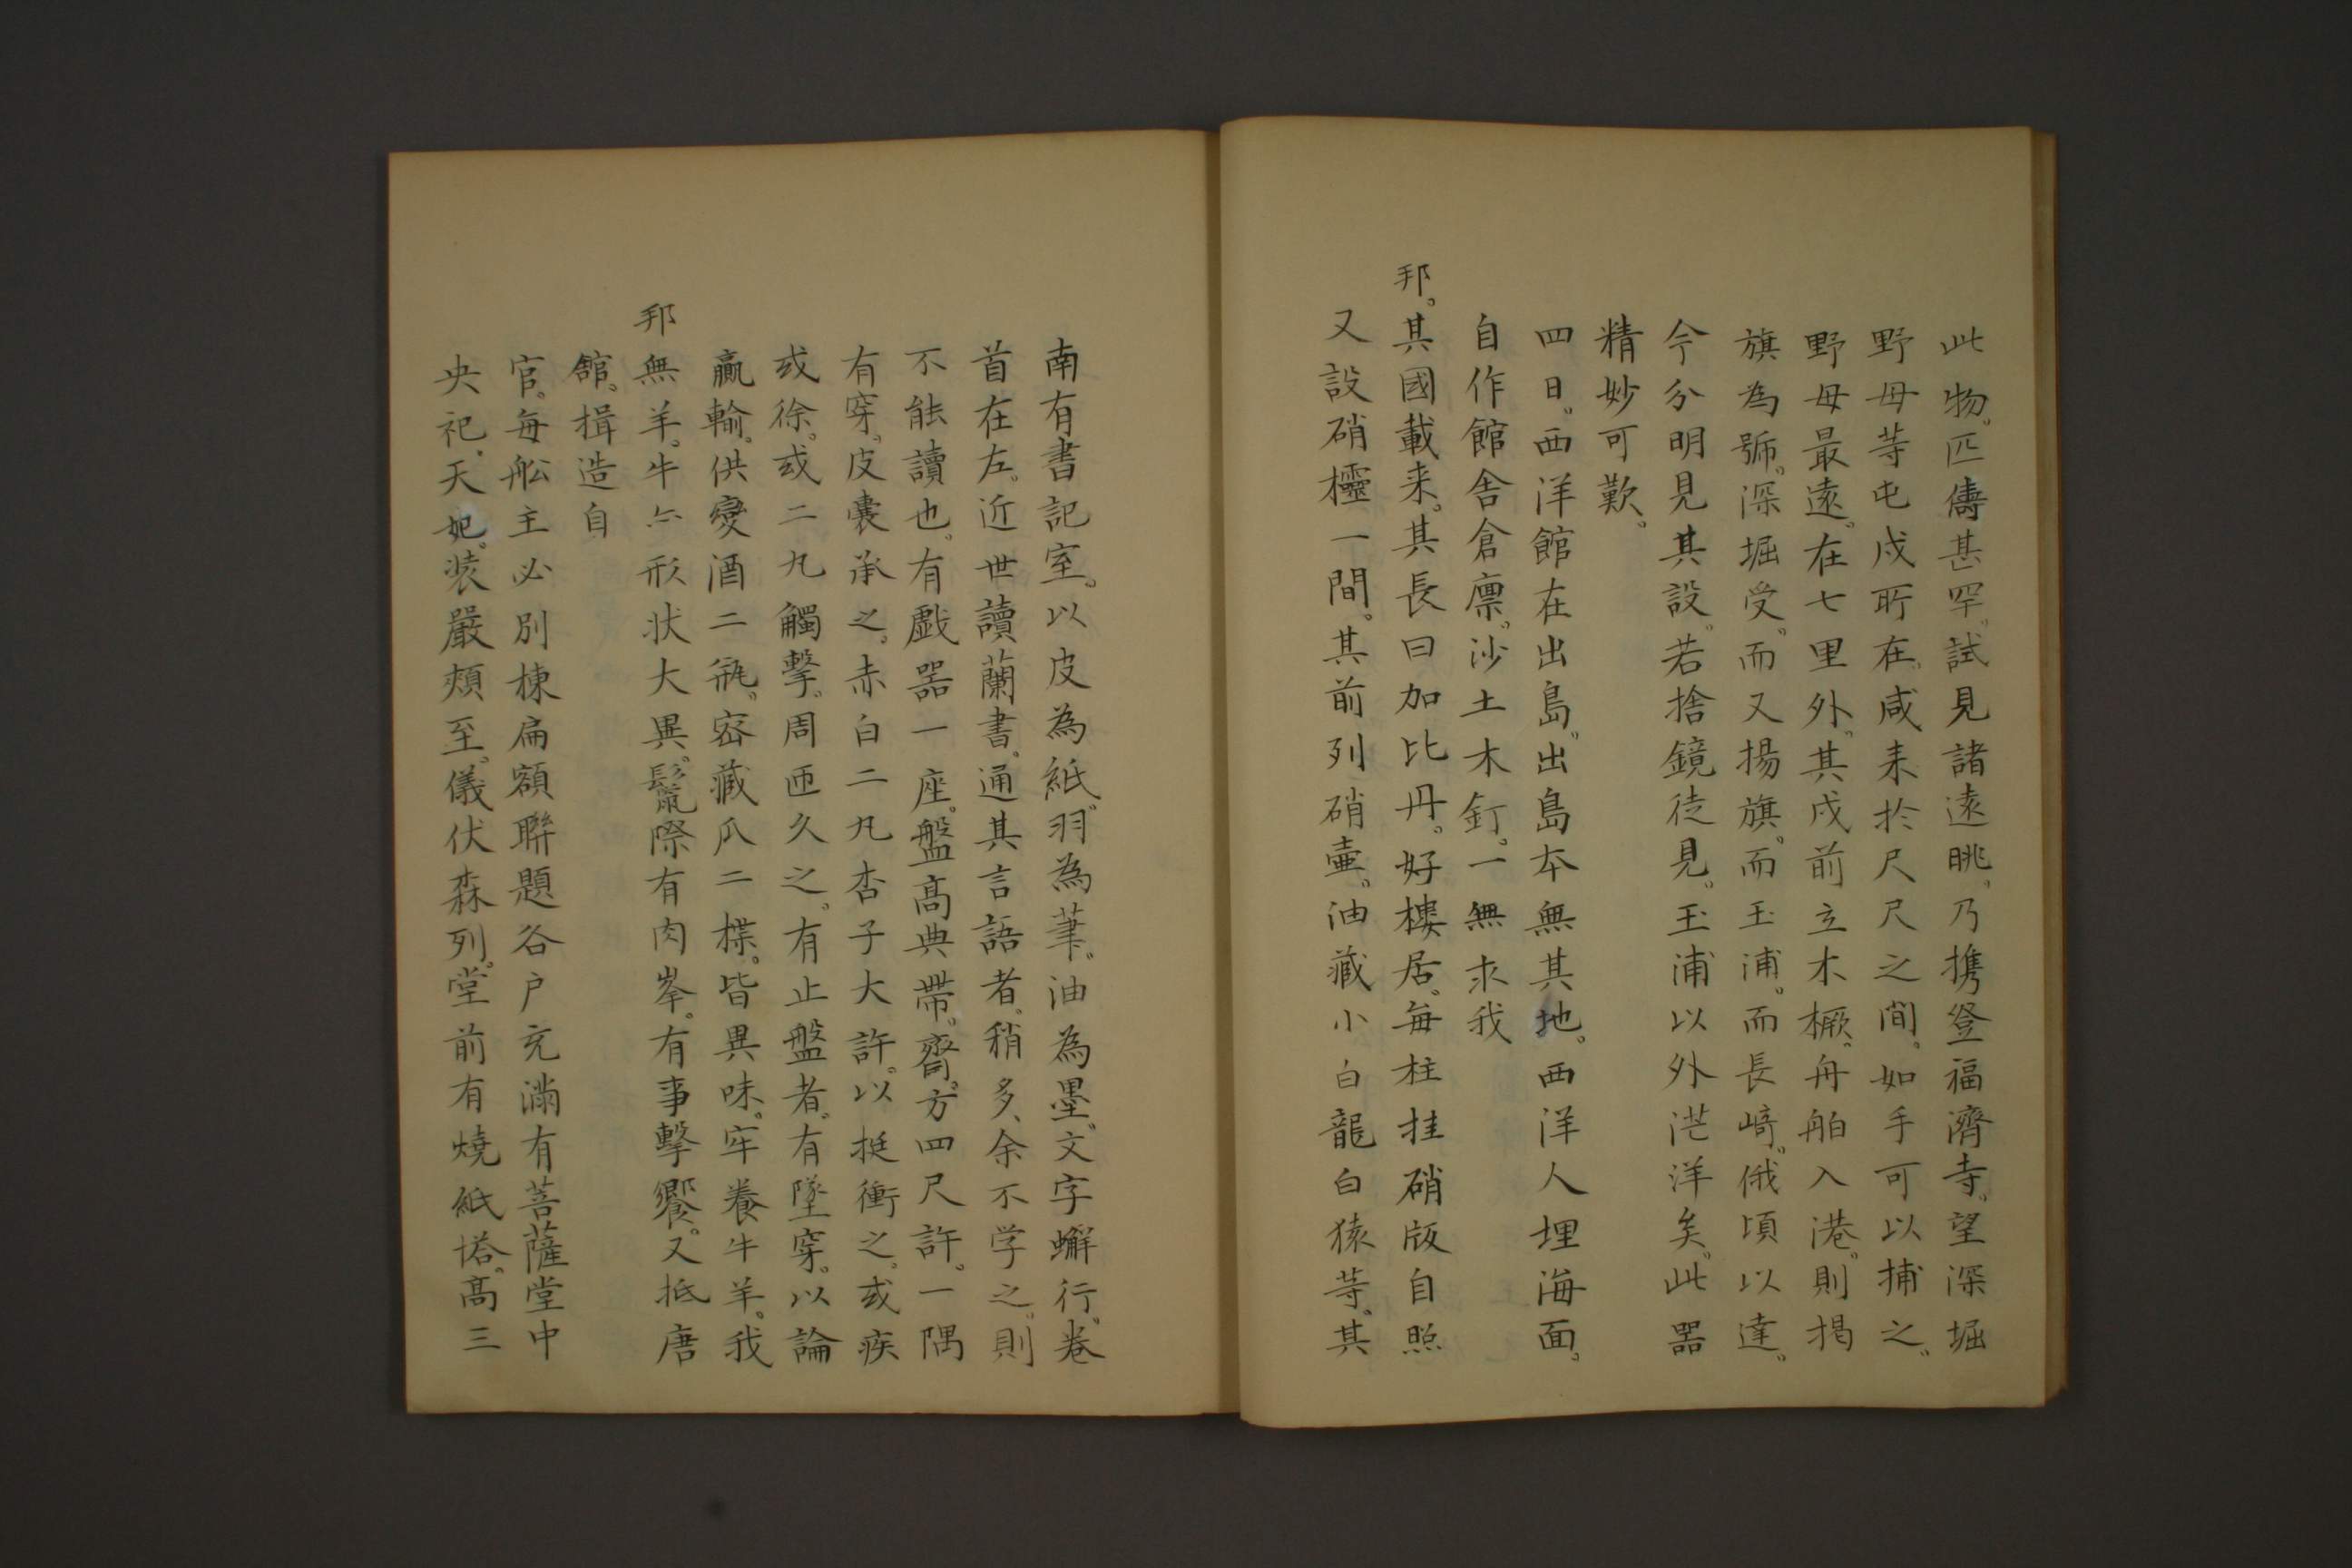 此物。匹儔甚罕。試見諸遠眺。乃携登福濟寺。望深堀
野母等屯戍所在。咸来於尺尺之間。如手可以捕之。
野母最遠。在七里外。其戍前立木橛。舟舶入港。則掲
旗為號。深堀受。而又揚旗。而玉浦。而長﨑。俄頃以達。
今分明見其設。若捨鏡徒見。玉浦以外茫洋矣。此器
精妙可歎。
四日。西洋館在出島。出島本無其地。西洋人埋海面。
自作館舎倉廪。沙土木釘。一無求我
邦。其國載来。其長曰加比丹。好樓居。毎柱挂硝版自照
又設硝櫺一間。其前列硝壷。油藏小白龍白猿等。其
南有書記室。以皮為紙。羽為筆。油為墨。文字蠏行。巻
首在左。近世讀蘭書。通其言語者。稍多、余不学之。則
不能讀也。有戯噐一座。盤髙典帶。齊。方四尺許。一隅
有穿。皮囊承之。赤白二丸杏子大許。以挺衝之。或疾
或徐。或二丸觸擊。周匝久之。有止盤者。有墜穿。以論
贏輸。供變酒二瓶。密藏瓜二楪。皆異味。牢養牛羊。我
邦無羊。牛亦形状大異。鬛際有肉峯。有事擊饗。又抵唐
舘。揖造自
官。毎舩主必別棟扁額聯題各户充滿有菩薩堂中
央祀。天妃。装嚴頬至。儀伏森列。堂前有燒紙塔。髙三